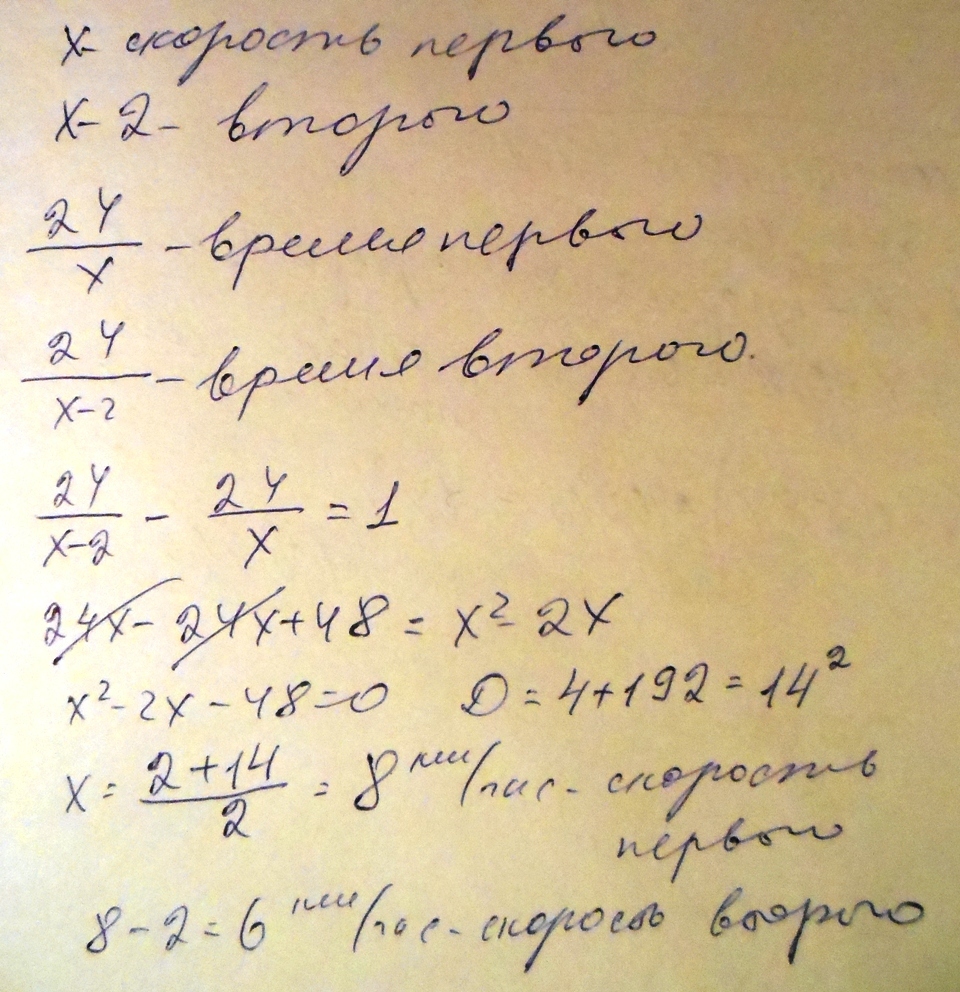 x - скорость первого
x - 2 - второго
24/x - время первого
24/(x-2) - время второго.
24/(x-2) - 24/x = 1
24x - 24x + 48 = x² - 2x
x² - 2x - 48 = 0 D = 4 + 192 = 14²
x = (2+14)/2 = 8 км/час - скорость
первого
8 - 2 = 6 км/час - скорость второго